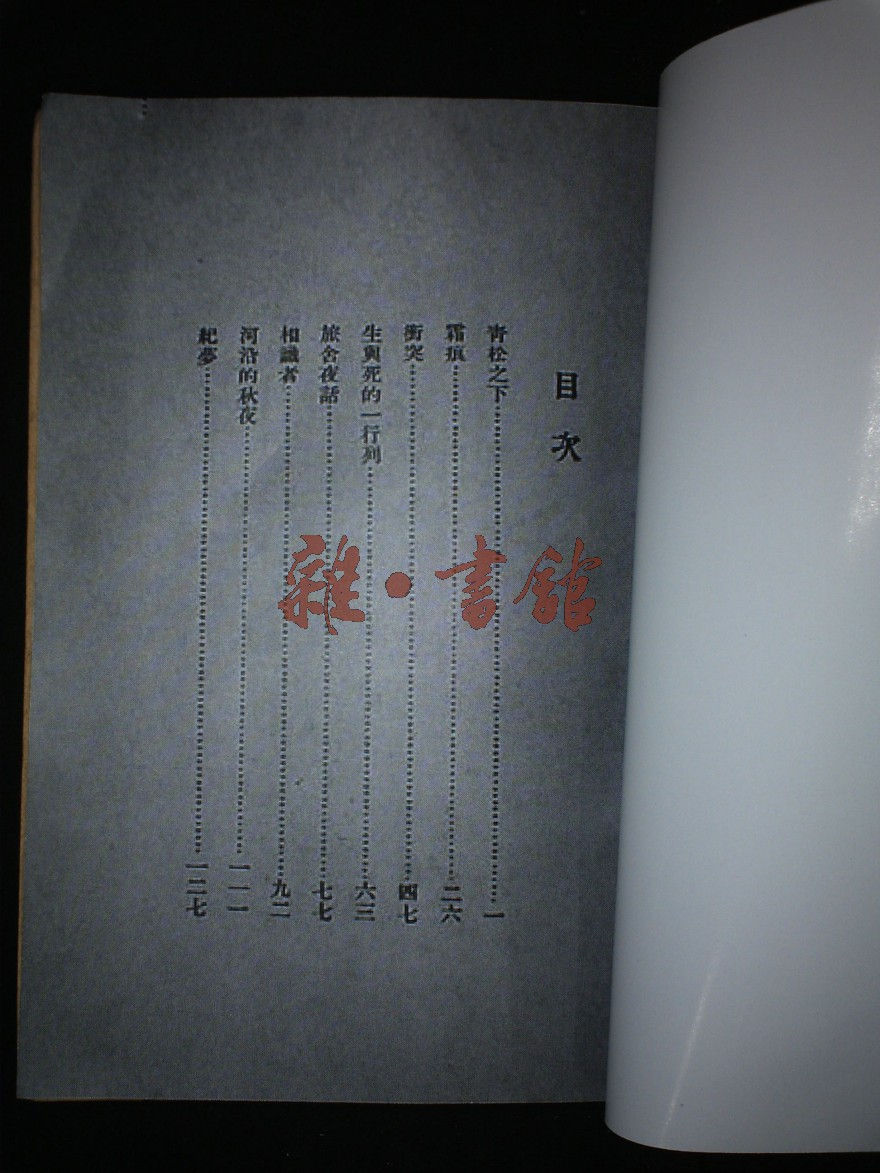 目次
青松之下……一
霜痕……二六
衝突……四七
生與死的一行列……六三
旅舍夜話……七七
相識者……九二
河沿的秋夜……一一一
紀夢……一二七
雜·書館